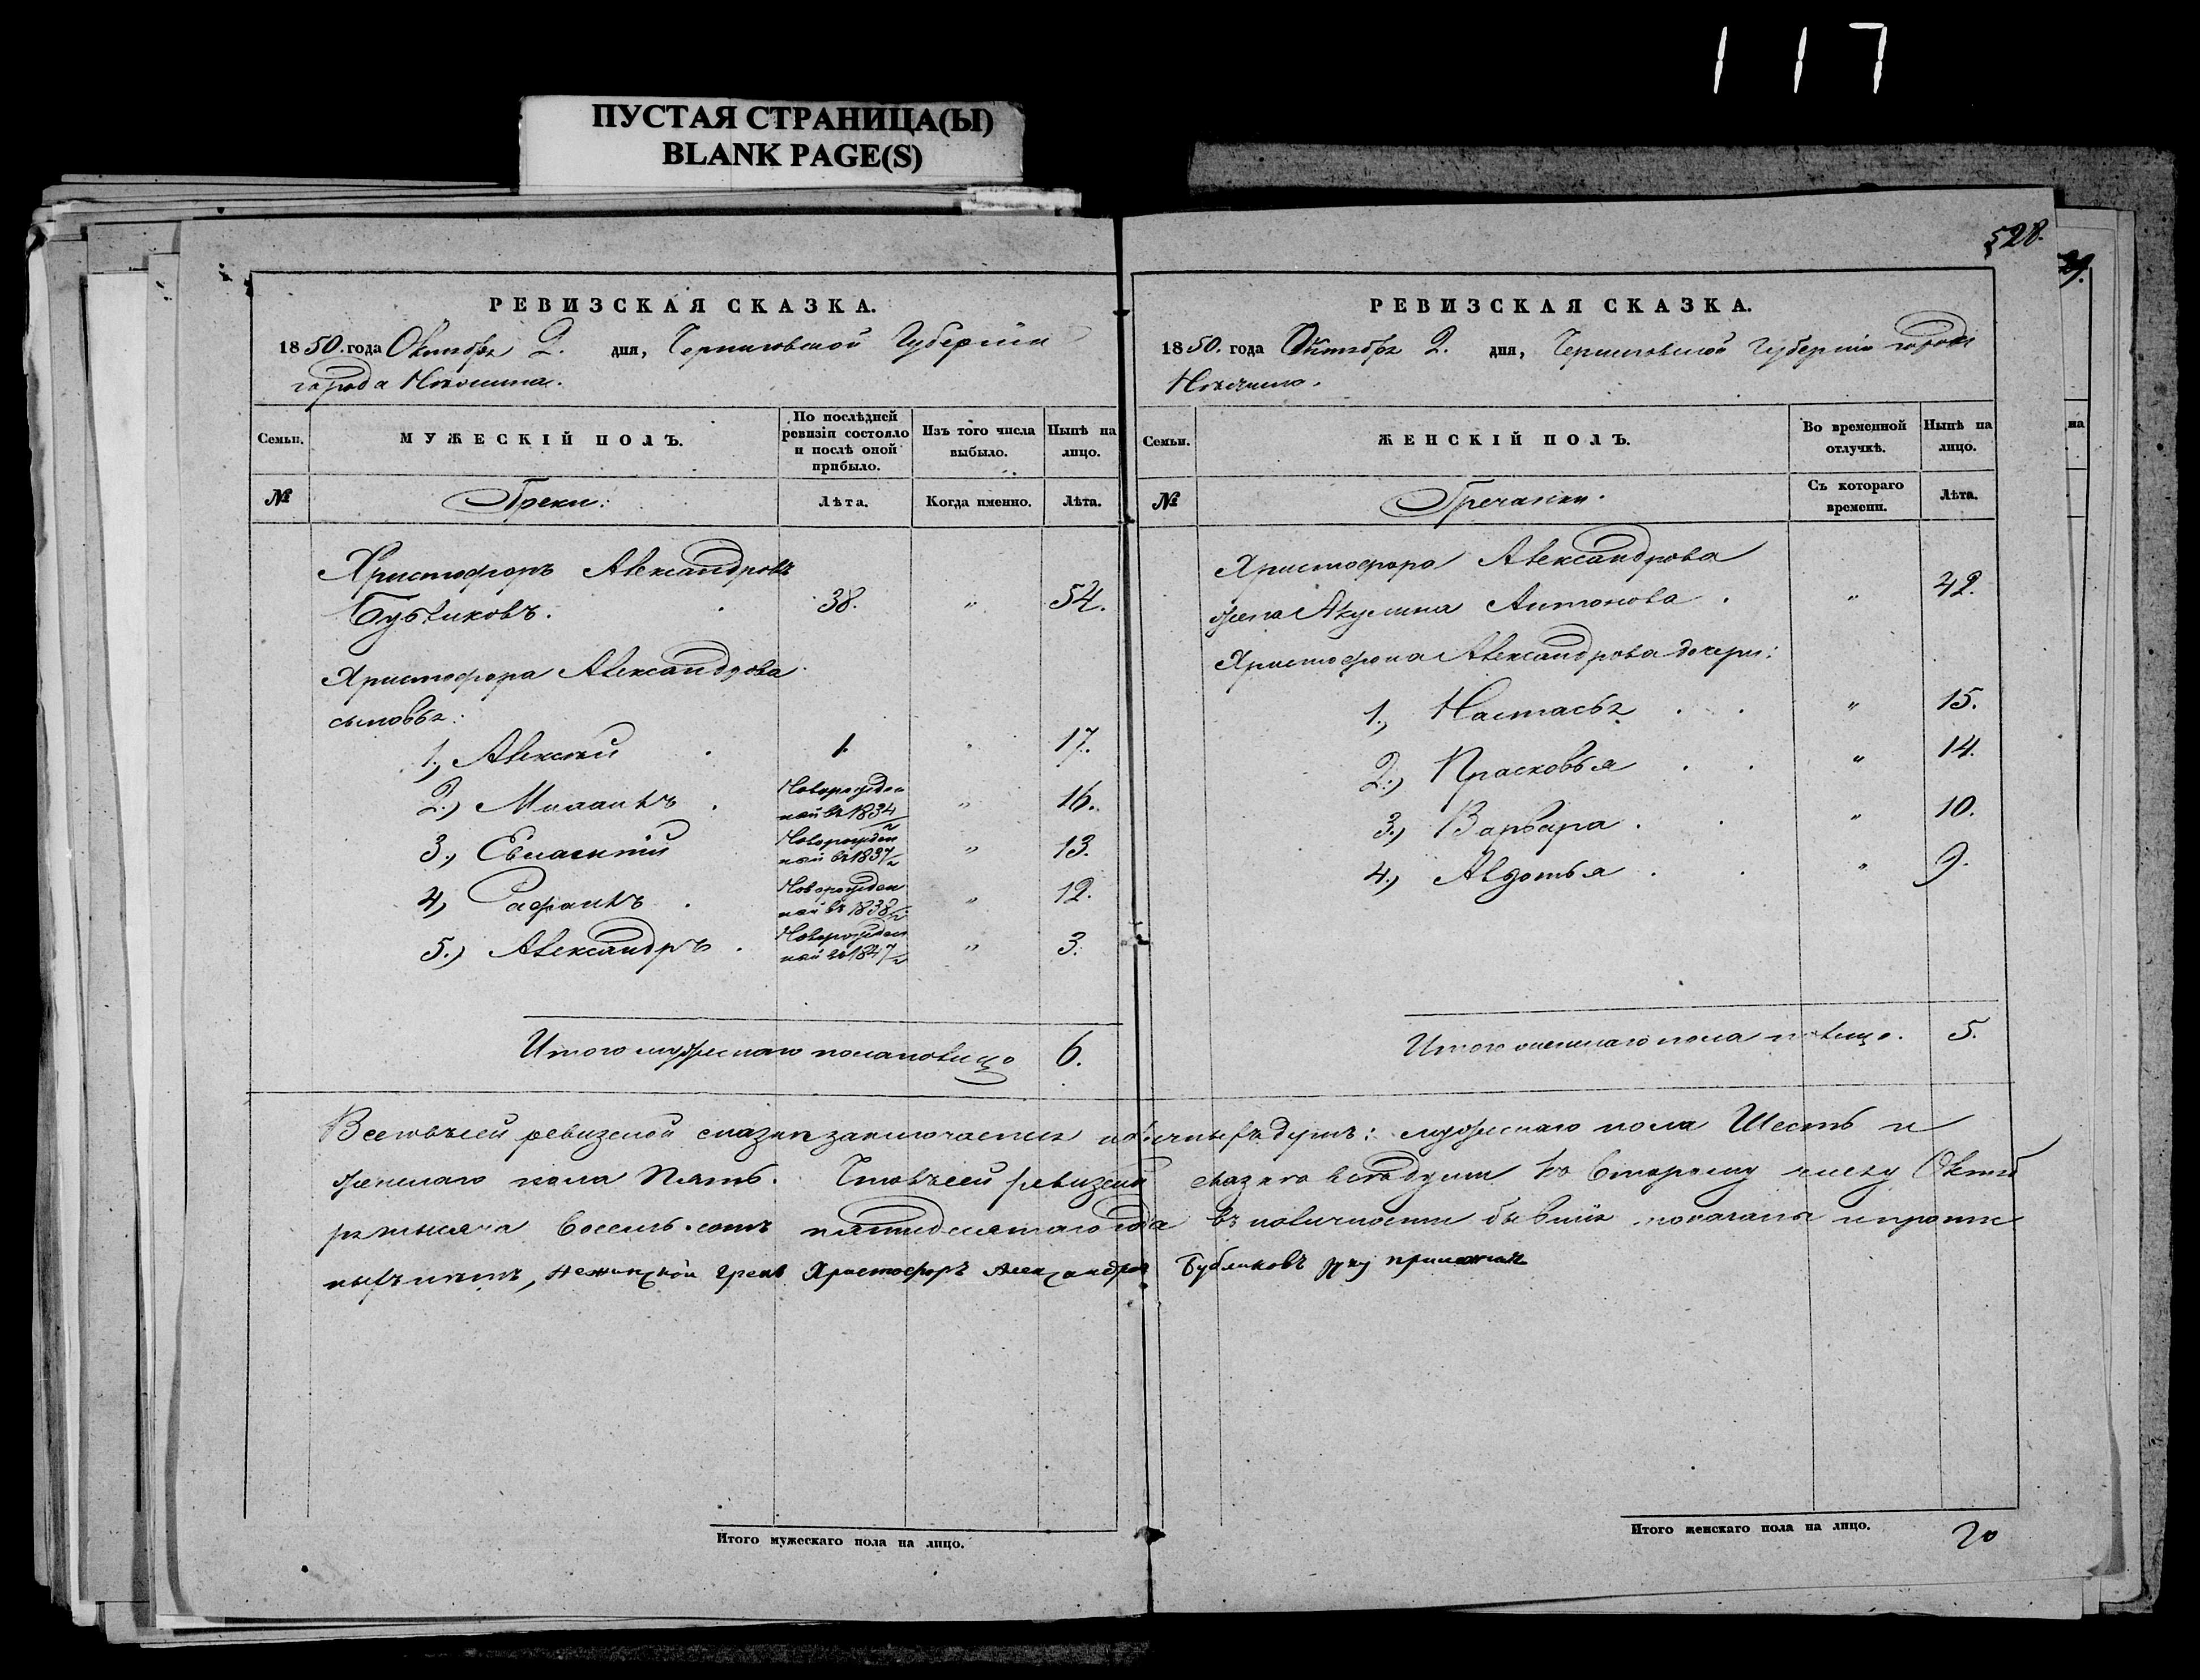 117
ПУСТАЯ СТРАНИЦА(Ы)
BLANK PAGE(S)
528.
29.
РЕВИЗСКАЯ СКАЗКА.
1850. года Октября 2. дня, Черниговской Губерніи
города Нѣжина.
Семьи.
МУЖЕСКІЙ ПОЛЪ.
По послѣдней ревизіи состояло и послѣ оной прибыло.
Изъ того числа выбыло.
Нынѣ на лицо.
№
Греки:
Лѣта.
Когда именно.
Лѣта.
Христофоръ Александровъ
Бубликовъ. 38. " 54.
Христофора Александрова
сыновья:
1., Алексѣй . 1. " 17.
2.) Михаилъ . Новорожденный въ 1834 " 16.
3.) Евлампій Новорожденный въ 1837 " 13.
4) Рафаилъ . Новорожденный въ 1838 " 12.
5.) Александръ . Новорожденный въ 1847 " 3.
Итого мужескаго пола налицо 6.
РЕВИЗСКАЯ СКАЗКА.
1850. года Октября 2. дня, Черниговской Губерніи города
Нѣжина.
Семьи.
ЖЕНСКІЙ ПОЛЪ.
Во временной отлучкѣ.
Нынѣ на лицо.
№
Гречанки.
Съ котораго времени.
Лѣта.
Христофора Александрова
жена Акулина Антонова . " 42.
Христофора Александрова дочери:
1., Настасья . . " 15.
2.) Прасковья . . " 14.
3.) Варвара . . " 10.
4.) Авдотья . . " 9.
Итого женскаго пола налицо. 5.
Всего въ сей ревизской сказке заключается наличныхъ душъ: мужескаго пола Шесть и
женскаго пола Пять. Что въ сей ревизской сказке все души ко второму числу Октяб
ря тысяча восемь сотъ пятидесятаго года въ наличности бывшія показаны и пропи
ныхъ нѣтъ, нежинской грекъ Христофоръ Александровъ Бубликовъ руку приложилъ
Итого мужескаго пола на лицо.
Итого женскаго пола на лицо.
20